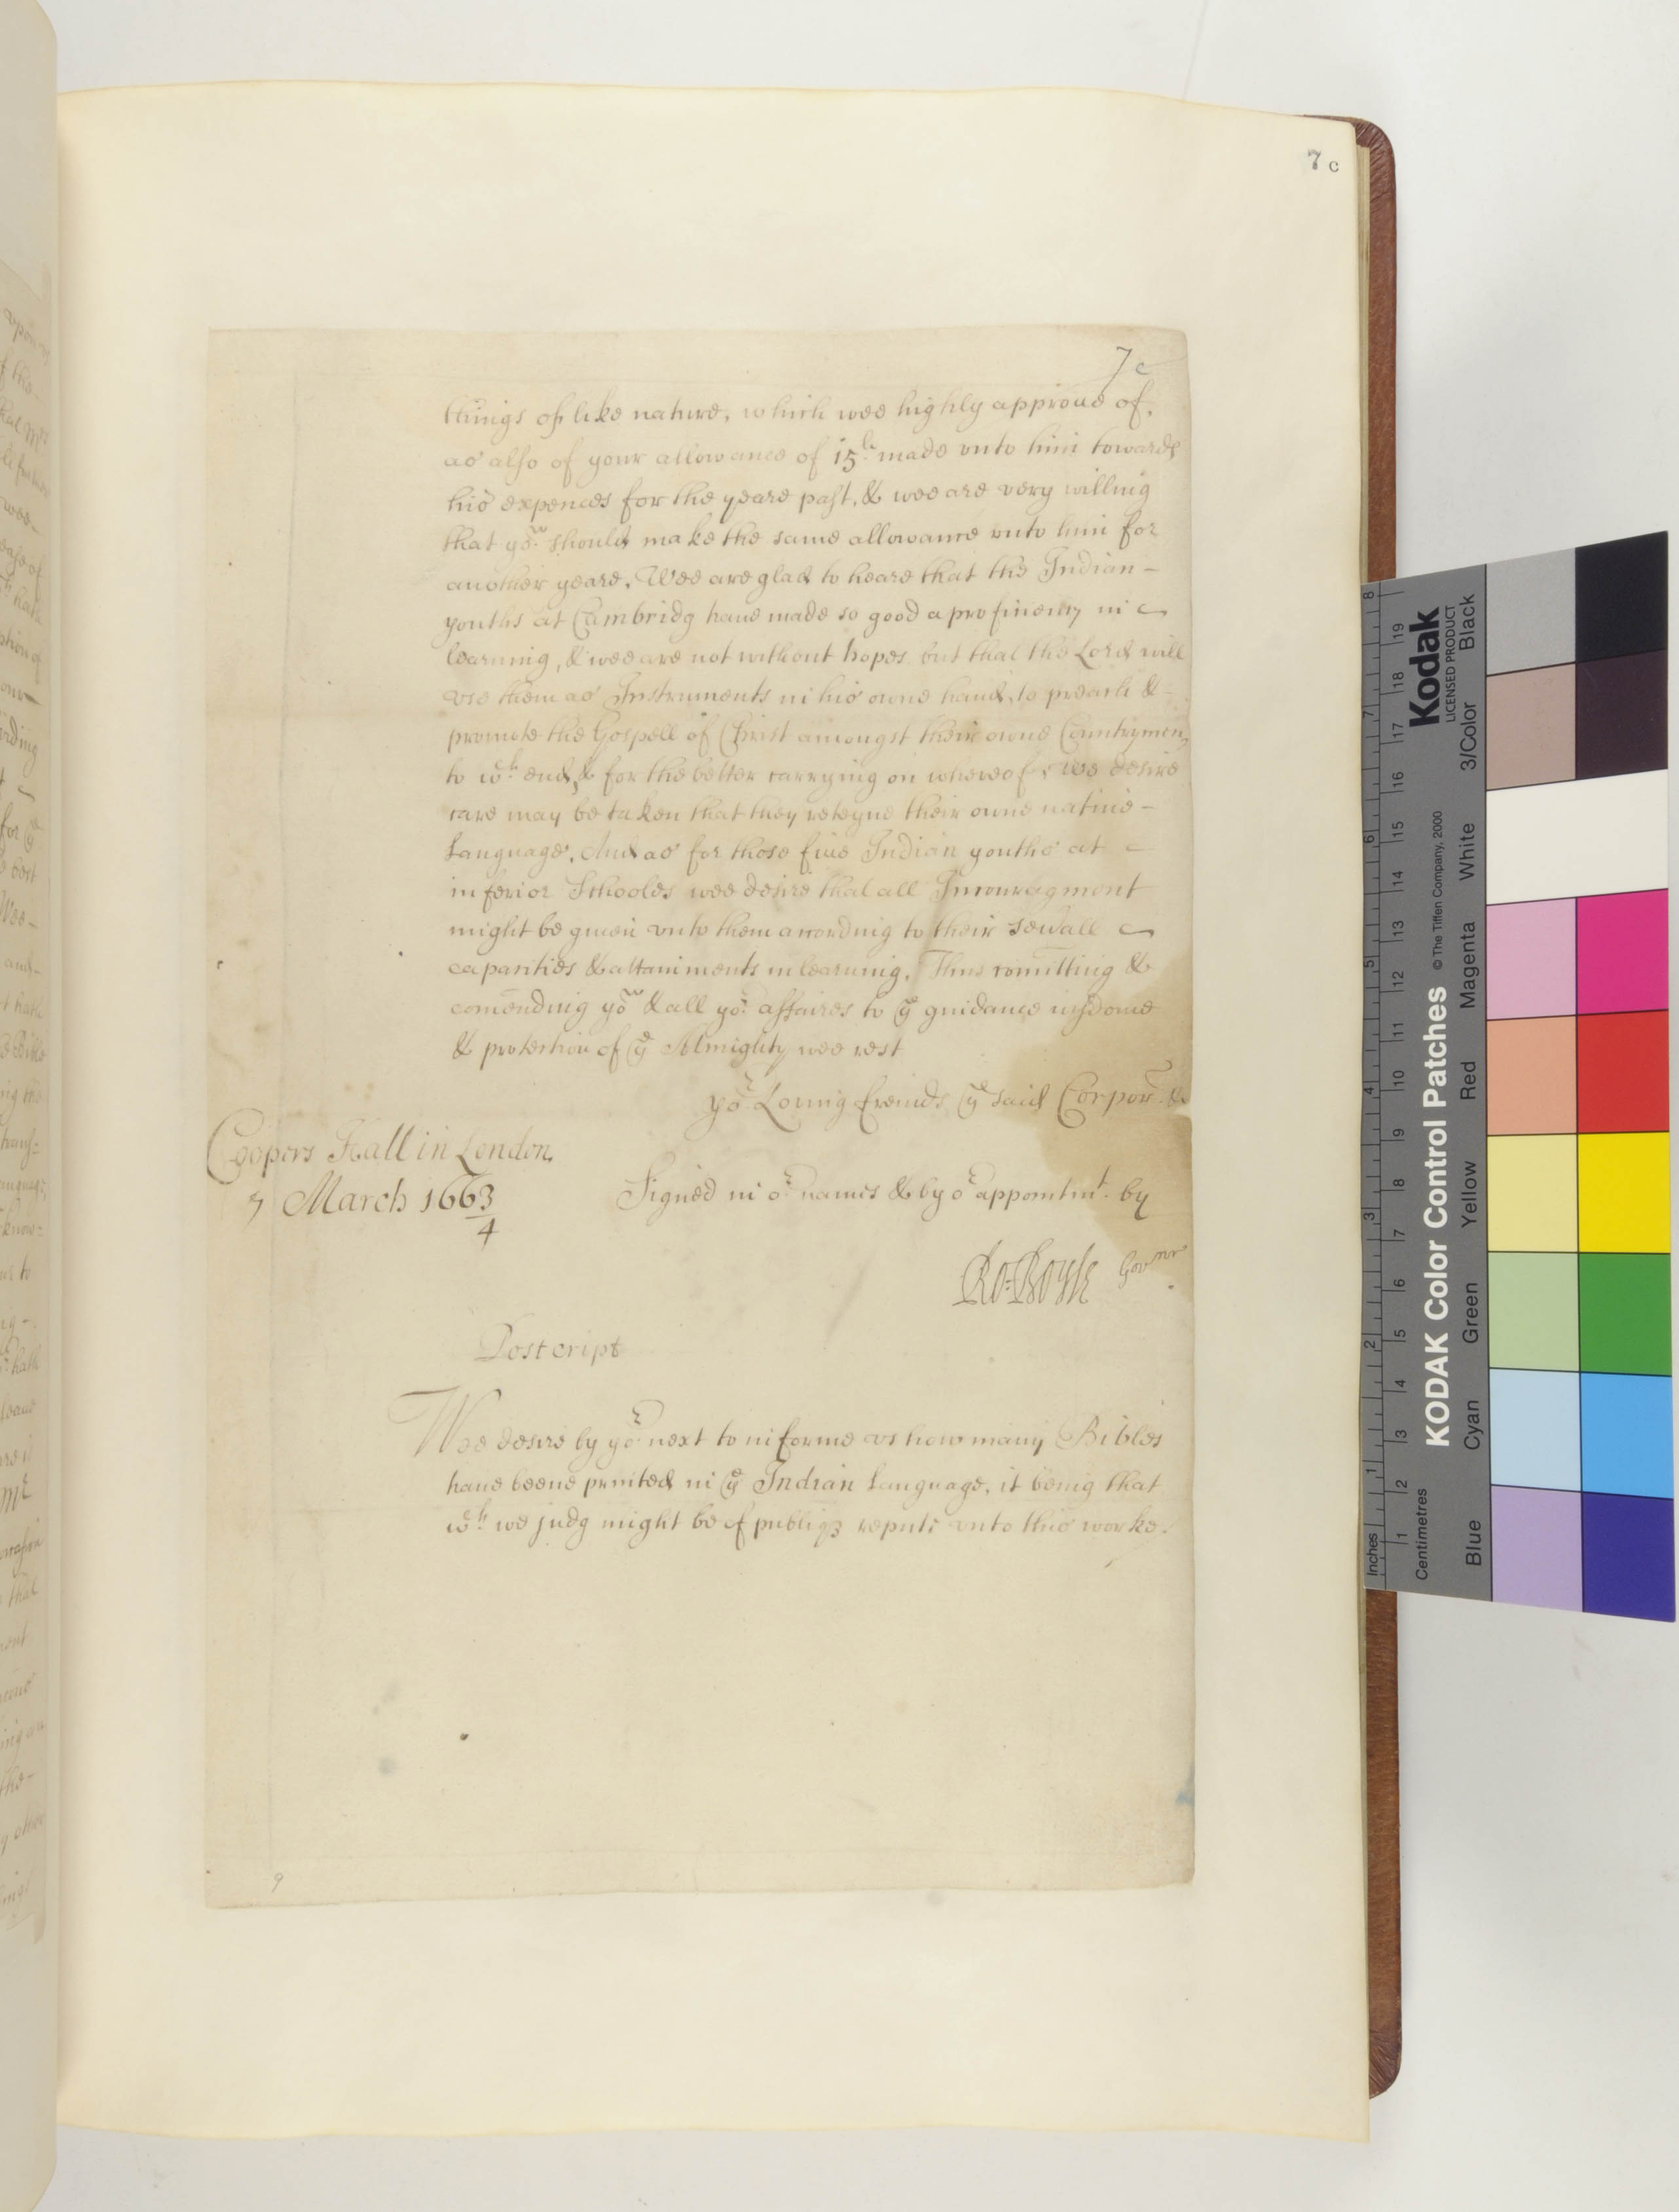 7 c
7 c
things of like nature, which wee highly approue of,
as also of your allowance of 15li. made vnto him towards
his expences for the yeare past, & wee are very willing
that yow should make the same allowance vnto him for
another yeare. Wee are glad to heare that the Indian -
youths at Cambridg haue made so good a proficiency in
learning, & wee are not without hopes but that the Lord will
vse them as Instruments in his owne hand, to preach & -
promote the Gospell of Christ amongst their owne Countrymen,
to wch. end, & for the better carrying on whereof, we desire
care may be taken that they reteyne their owne natiue -
Language. And as for those fiue Indian youths at
inferior Schooles wee desire that all Incouragment
might be giuen vnto them according to their seuall
capacities & attainments in learning. Thus comitting &
comending yow & all yor. affaires to ye guidance wisdome
& protection of ye Almighty wee rest
yor. Louing freinds ye said Corpor. &
Coopers Hall in London.
7 March 1663
4
Signed in or. names & by or appointmt. by
Ro: Boyle Govrnor.
Postcript
Wee desire by yor. next to informe vs how many Bibles
haue beene printed in ye Indian Language, it being that
wch. we judg might be of publiq3 repute vnto this worke.
9
Kodak
LICENSED PRODUCT
KODAK Color Control Patches
© The Tiffen Company, 2000
Inches
1 2 3 4 5 6 7 8
Centimetres
1 2 3 4 5 6 7 8 9 10 11 12 13 14 15 16 17 18 19
Blue
Cyan
Green
Yellow
Red
Magenta
White
3/Color
Black